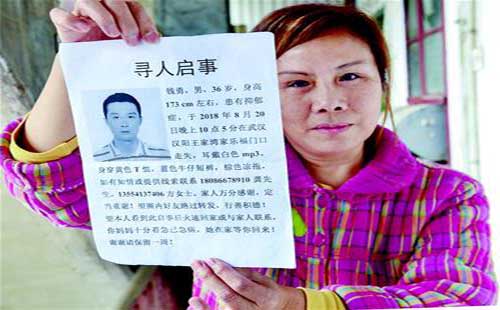 寻人启事
钱勇，男，36岁，身高
173cm左右，患有抑郁
症，于2018年8月20
日晚上10点5分在武汉
汉阳王家湾家乐福门口
走失，耳戴白色mp3，
身穿黄色T恤，蓝色牛仔短裤，棕色凉拖，
如有知情或提供线索联系18086678910龚先
生，13554137406方女士，家人万分感谢，定
当重谢！望圈内好友路过转发，行善积德！
望本人看到此启事后火速回家或与家人联系，
你妈妈十分着急已急病，她在家等你回来！
谢谢请保留一周！